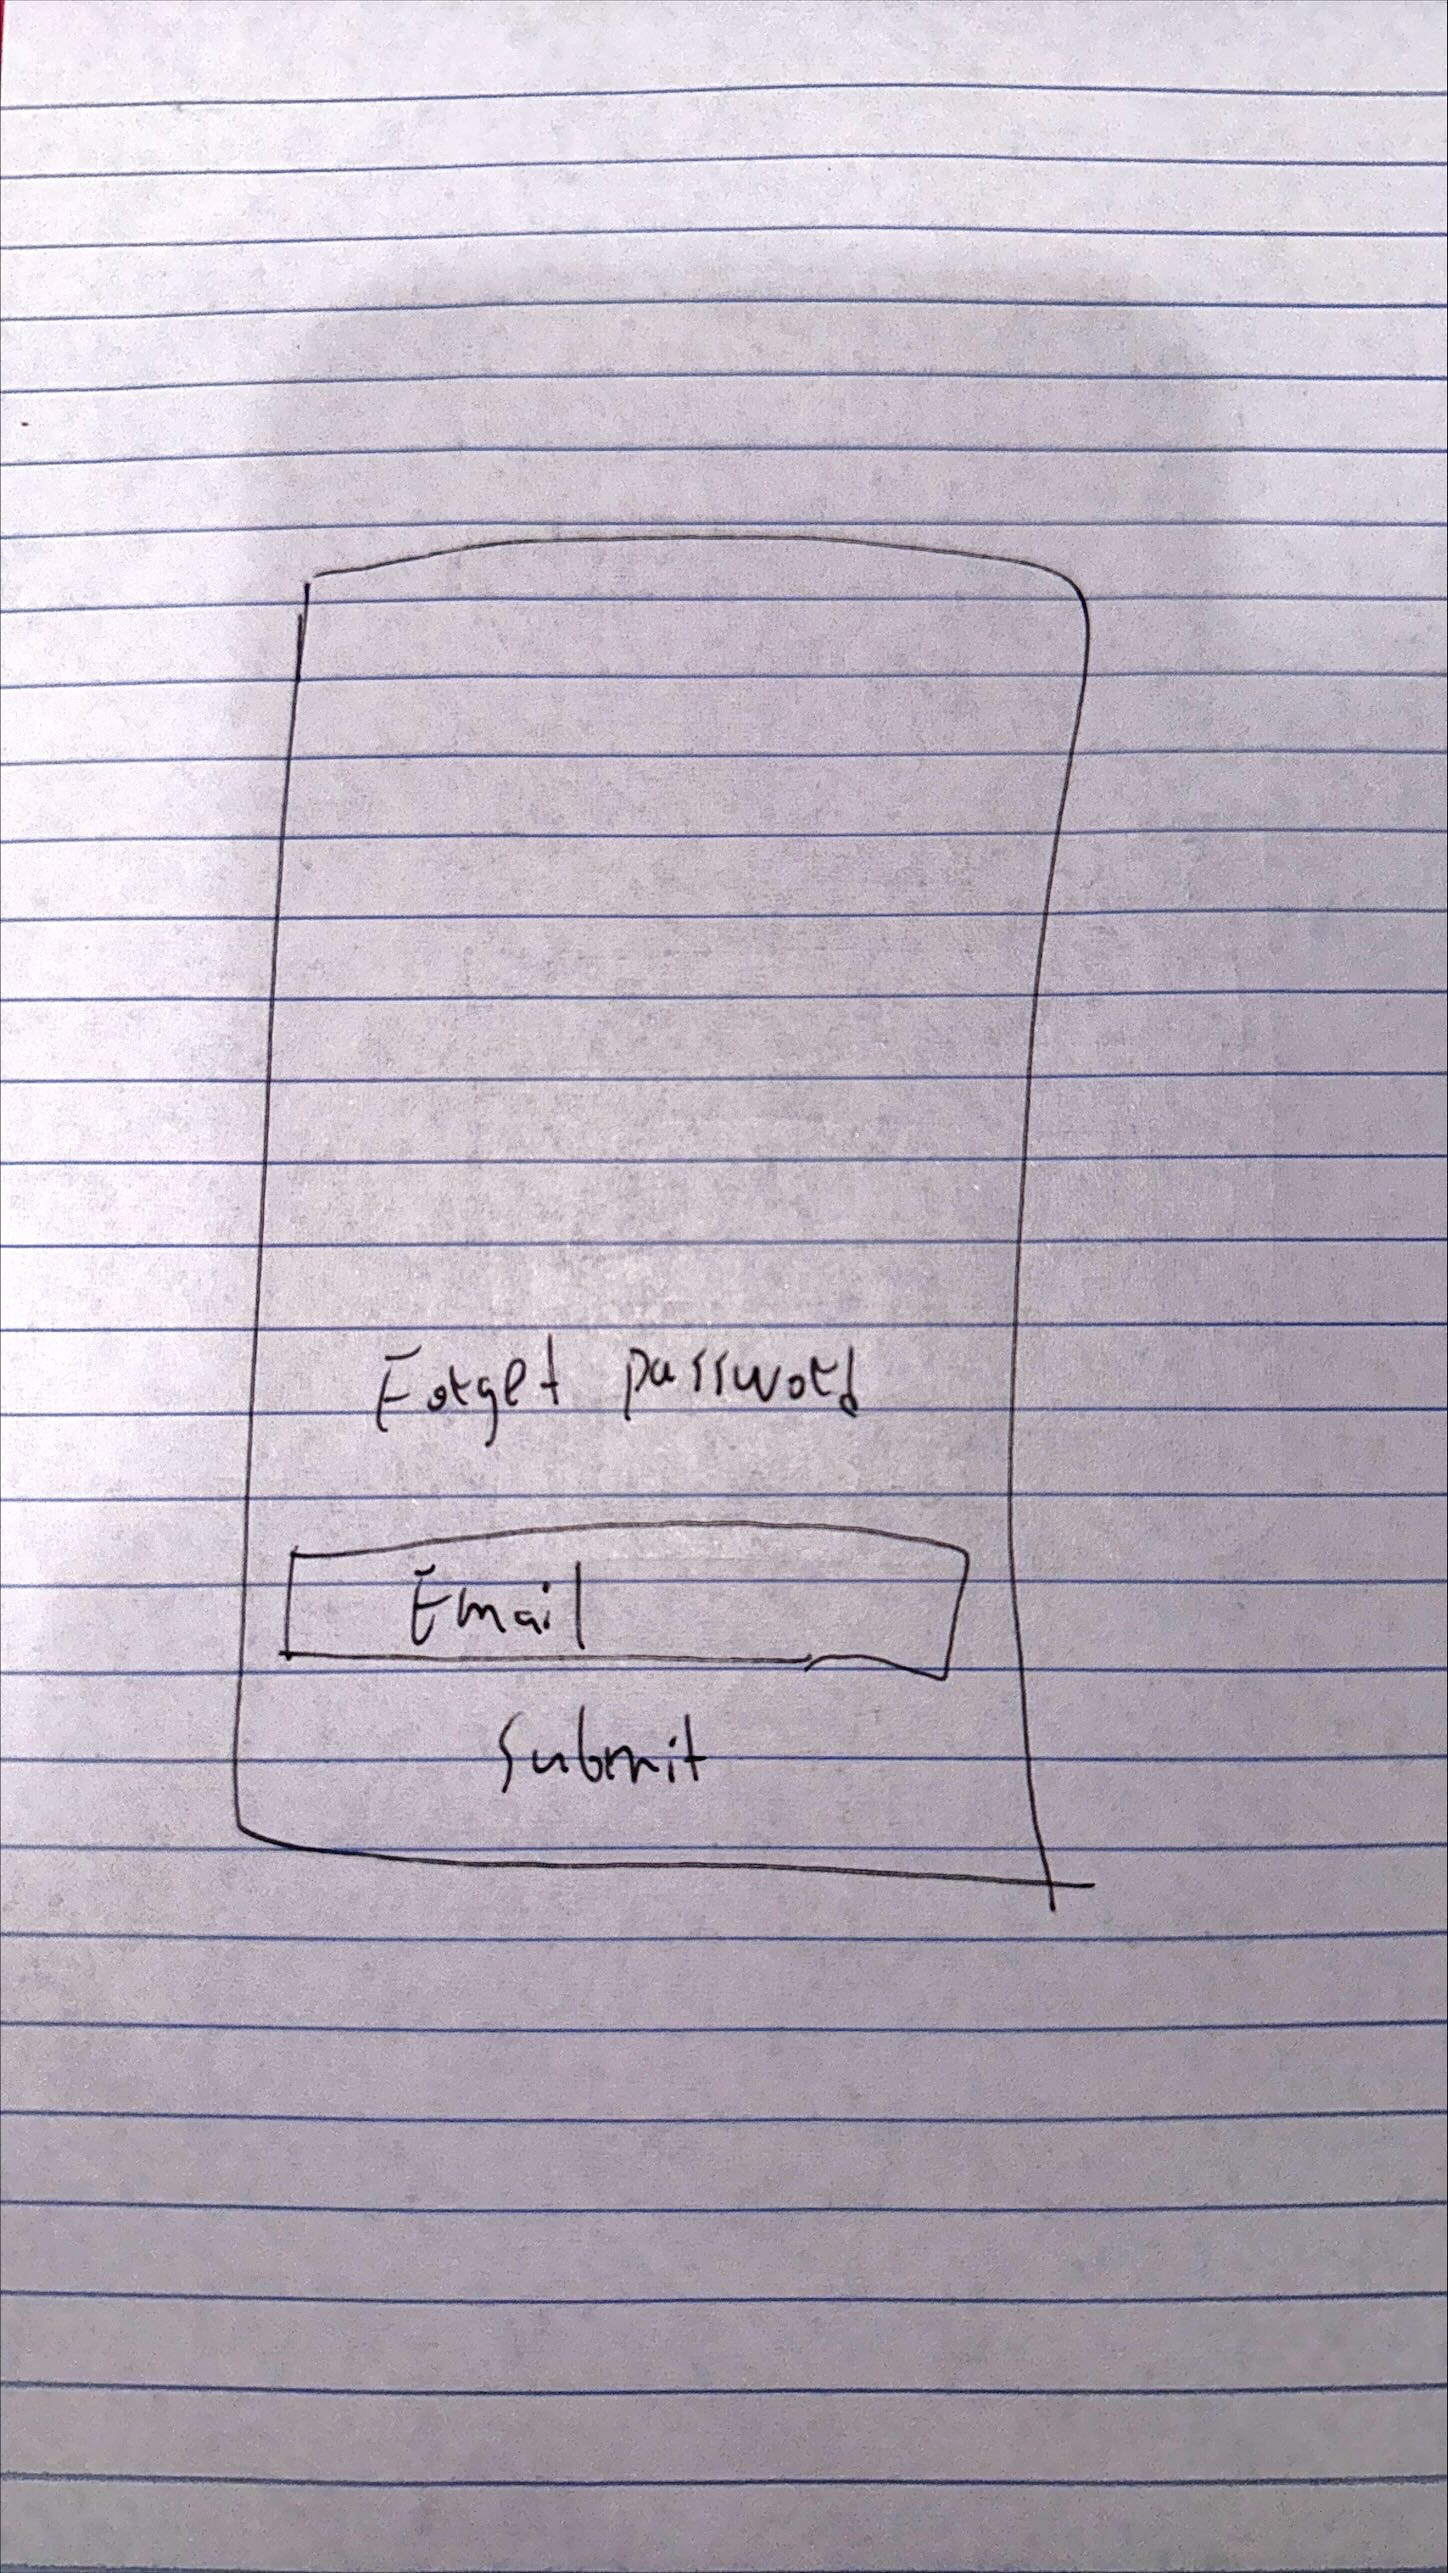 Forget password
Email
Submit